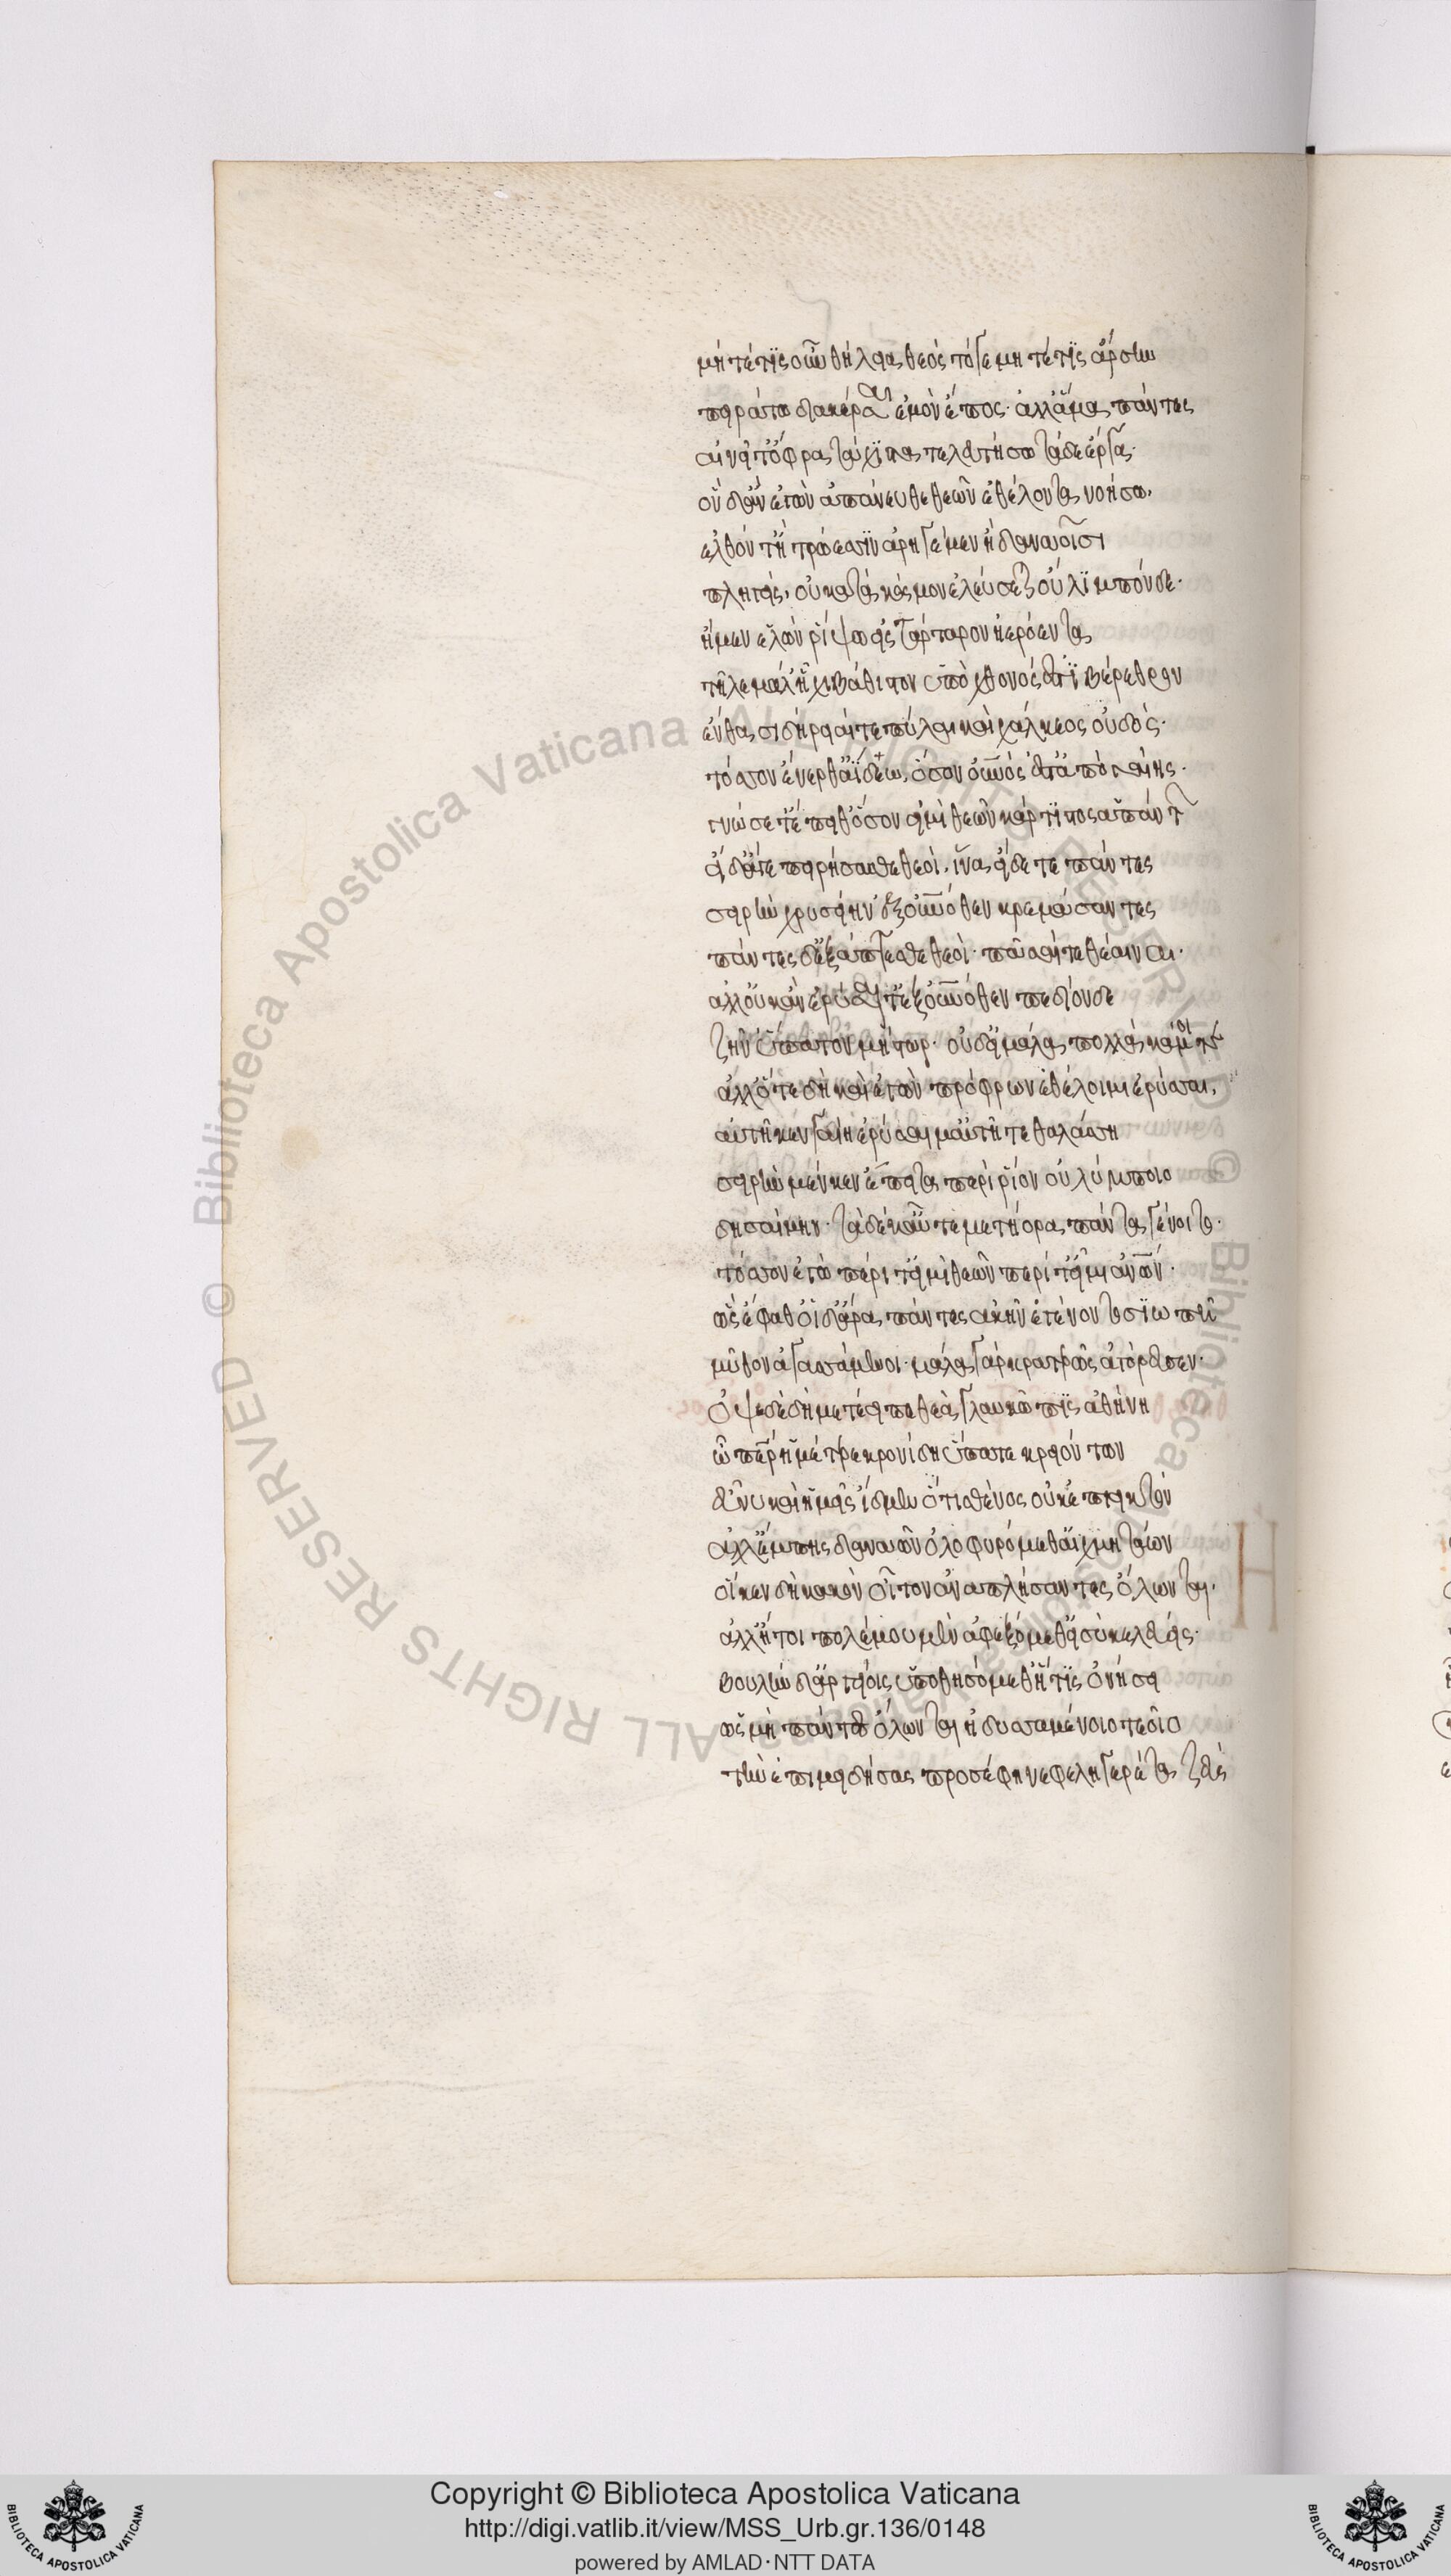 μήτέ τις οὖν θήλεια θεὸς τόγε μητέ τις ἄρσην
πειράτω διακέρσαι ἐμὸν ἔπος· ἀλλ' ἅμα πάντες
αἰνεῖτ' ὄφρα τάχιστα τελευτήσω τάδε ἔργα·
ὃν δ' ἂν ἐγὼν ἀπάνευθε θεῶν ἐθέλοντα νοήσω,
ελθόντ' ἢ τρώεσσιν ἀρηγέμεν ἢ δαναοῖσι
πληγεὶς, οὐ κατὰ κόσμον ἐλεύσεται οὐλυμπόνδε·
ἤ μεν ἑλὼν ῥίψω ἐς τάρταρον ἠερόεντα
τῆλε μάλ' ἧχι βάθιστον ὑπὸ χθονός ἐστι βέρεθρον
ἔνθα σιδήρειαί τε πύλαι καὶ χάλκεος οὐδὸς·
τόσσον ἔνερθ' ἀΐδεω, ὅσον οὐνός ἐστ' ἀπὸ γαίης·
γνώσετ' ἔπειθ' ὅσον εἰμὶ θεῶν κάρτιστος ἁπάντων
εἰ δ' ἄγε πειρήσασθε θεοὶ, ἵνα εἴδετε πάντες
σειρὴν χρυσείην ἐξ οὐνόθεν κρεμάσαντες
πάντες δ' ἐξάπτεσθε θεοὶ· πᾶσαί τε θέαιναι·
αλλ' οὐκ ἂν ἐρύσαιτ' ἐξ οὐνόθεν πεδίονδε
ζῆν' ὕπατον μήστωρ'· οὐδ' εἰ μάλα πολλὰ κάμοιτε
ἀλλ' ὅτε δὴ καὶ ἐγὼν πρόφρων ἐθέλοιμι ἐρύσσαι,
αὐτῆ κεν γαίη ἐρύσαιμ' αὐτῆ τε θαλάσση
σειρὴν μέν κεν ἔπειτα περὶ ῥίον οὐλύμποιο
δησαίμην· τὰ δέ κ' αὖτε μετήορα πάντα γένοιτο·
τόσσον ἐγὼ περί τ' εἰμὶ θεῶν περί τ' εἰμ' ἀνῶν·
ὣς ἔφαθ' οἱ δ' ἄρα πάντες ἀκὴν ἐγένοντο σιωπῆ
μῦθον ἀγασσάμενοι· μάλα γὰρ κρατερῶς ἀγόρευσεν·
ὀψὲ δὲ δὴ μετέειπε θεὰ γλαυκῶπις ἀθήνη
ὦ πὲρ ἡμέτερε κρονίδη ὕπατε κρειόντων
εὖ νυ καὶ ἡμεῖς ἴδμεν ὅτι σθένος οὐκ ἐπιεικτόν
ἀλλ' ἔμπης δαναῶν ὀλοφυρόμεθ' αἰχμητάων
οἵ κεν δὴ κακὸν οἶτον ἀναπλήσαντες ὄλωνται·
ἀλλ' ἤτοι πολέμου μὲν ἀφεξόμεθ' εἰ σὺ κελεύεις·
βουλὴν δ' ἀργείοις ὑποθησόμεθ' ἥ τις ὀνήσει
ὡς μὴ πάντες ὄλωνται ὀδυσσαμένοιο τεοῖο
τὴν ἐπιμειδήσας προσέφη νεφεληγερέτα ζεὺς
Copyright © Biblioteca Apostolica Vaticana
http://digi.vatlib.it/view/MSS_Urb.gr.136/0148
powered by AMLAD·NTT DATA